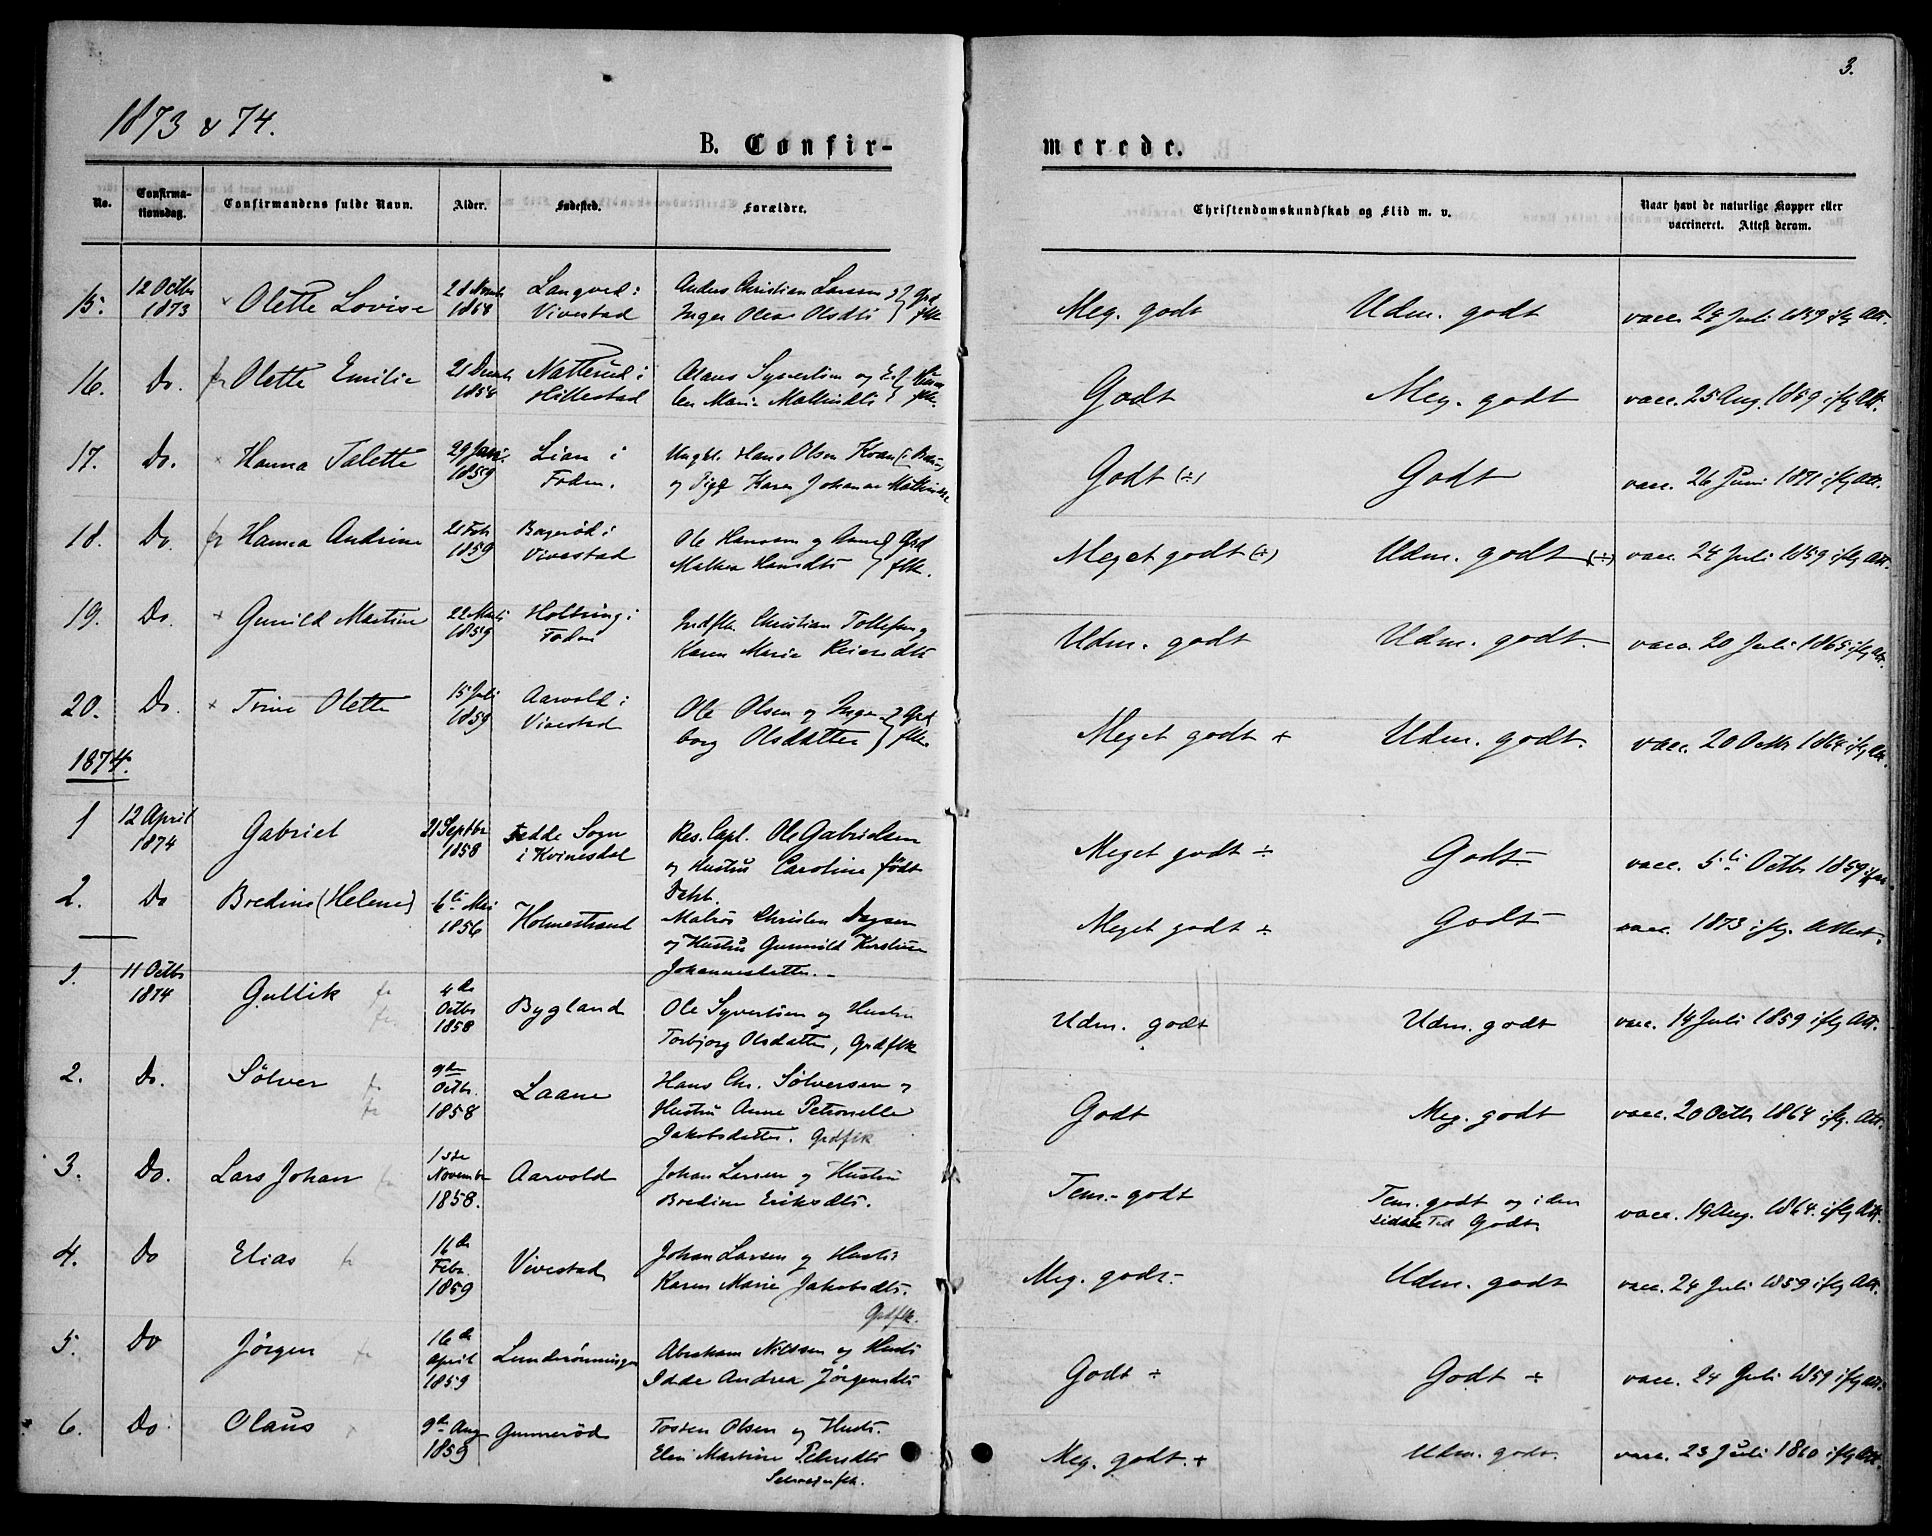 3.
1873 & 74.
B. Confir- merede.
No. Confirma-tionsdag. Confirmandens fulde Navn. Alder. Indested. Forældre. Christendomskundskab og Flid m. v. Naar havt de naturlige Kopper eller vaccineret. Attest derom.
15. 12 Octbr 1873 Olette Lovise 1858 Langved i Vivestad Anders Christian Larsen Inger Olea Olsdtr Grd flk Meg. godt Udm. godt vacc. 24 Juli 1859 iflg Att.
16. Do. fr Olette Emilie 21 Decmbr 1858 Natterud i Hillestad Olaus Syvertsen og El- len Marie Mathisdtr flk. Godt Meg. godt vacc. 25 Aug. 1869 iflg Att.
17. Do. Hanna Talette 29 Janr. 1859 Lian i Fodn. Ungkl. Hans Olsen og Pige Karen Johanne Godt (÷) Godt vacc. 26 Juni 1871 iflg Att.
18. Do. fr Hanna Andrine 21 Febr 1859 Bagerød i Vivestad Ole Hansen og Anne Mathea Hansdtr Grd flk. Meget godt (÷) Udm. godt (÷) vacc. 24 Juli 1859 iflg Att.
19. Do. Gunild Martine 22 Marts 1859 i Fodn Grdflk. Christian Tollefsen og Karen Marie Udm. godt Udm. godt. vacc. 20 Juli 1865 iflg Att.
20. Do. Trine Olette 15 Juli 1859 Aarvold i Vivestad Ole Olsen og Inge- borg Olsdatter Grd flk. Meget godt + Udm. godt. vacc. 20 Octbr 1864 iflg Att.
1874.
1 12 April 1874 Gabriel 21 Septbr 1858 Fedde Sogn i Kvinesdal Res. Capl. Ole Gabrielsen og Hustru Caroline født Dahl. Meget godt ÷ Godt vacc. 5te Octbr 1859
2. Do Bredine (Helene) 6te Mai 1856 Holmestrand Matros Christen og Hustru Gunnild Kirstine Johannesdatter. Meget godt ÷ Godt vacc. 1873 iflg. Attest.
1. 11 Octbr 1874 Gullik fr 4de Octbr 1858 Bygland Ole Syvertsen og Hustru Torbjorg Olsdatter, Grdflk Udm. godt Udm. godt vacc. 14 Juli 1859 iflg Att.
2. Do. Sölver fr 9de Octbr. 1858 Laane Hans Chr. Sölversen og Hustru Anne Petronelle Jakobsdatter. Grdflk Godt Meg. godt vacc. 20 Octbr 1864 iflg. Att.
3. Do. Lars Johan fr 1ste Novembr 1858. Aarvold Johan Larsen og Hustru Bredine Eriksdtr. Tem.- godt Tem. godt og i den sidste Tid Godt vacc. 19 Aug. 1864. iflg Att.
4. Do Elias fr 16de Febr. 1859 Vivestad Johan Larsen og Hustr. Karen Marie Jakobsdtr. Grdflk. Meg. godt.- Udm. godt vacc. 24 Juli 1859 iflg Att.
5. Do Jörgen fr 16de April 1859 Lunderönningen Abraham Nilssen og Hustr. Idde Andrea Jörgensdtr Godt ÷ Godt ÷ vacc. 24 Juli 1859 iflg Att.
6. Do Olaus 9de Aug 1859 Gunneröd Tosten Olsen og Hustr. Elen Martine Pedersdtr Selveierflk. Meg. godt. + Udm. godt. vacc. 23 Juli 1860 iflg Att.